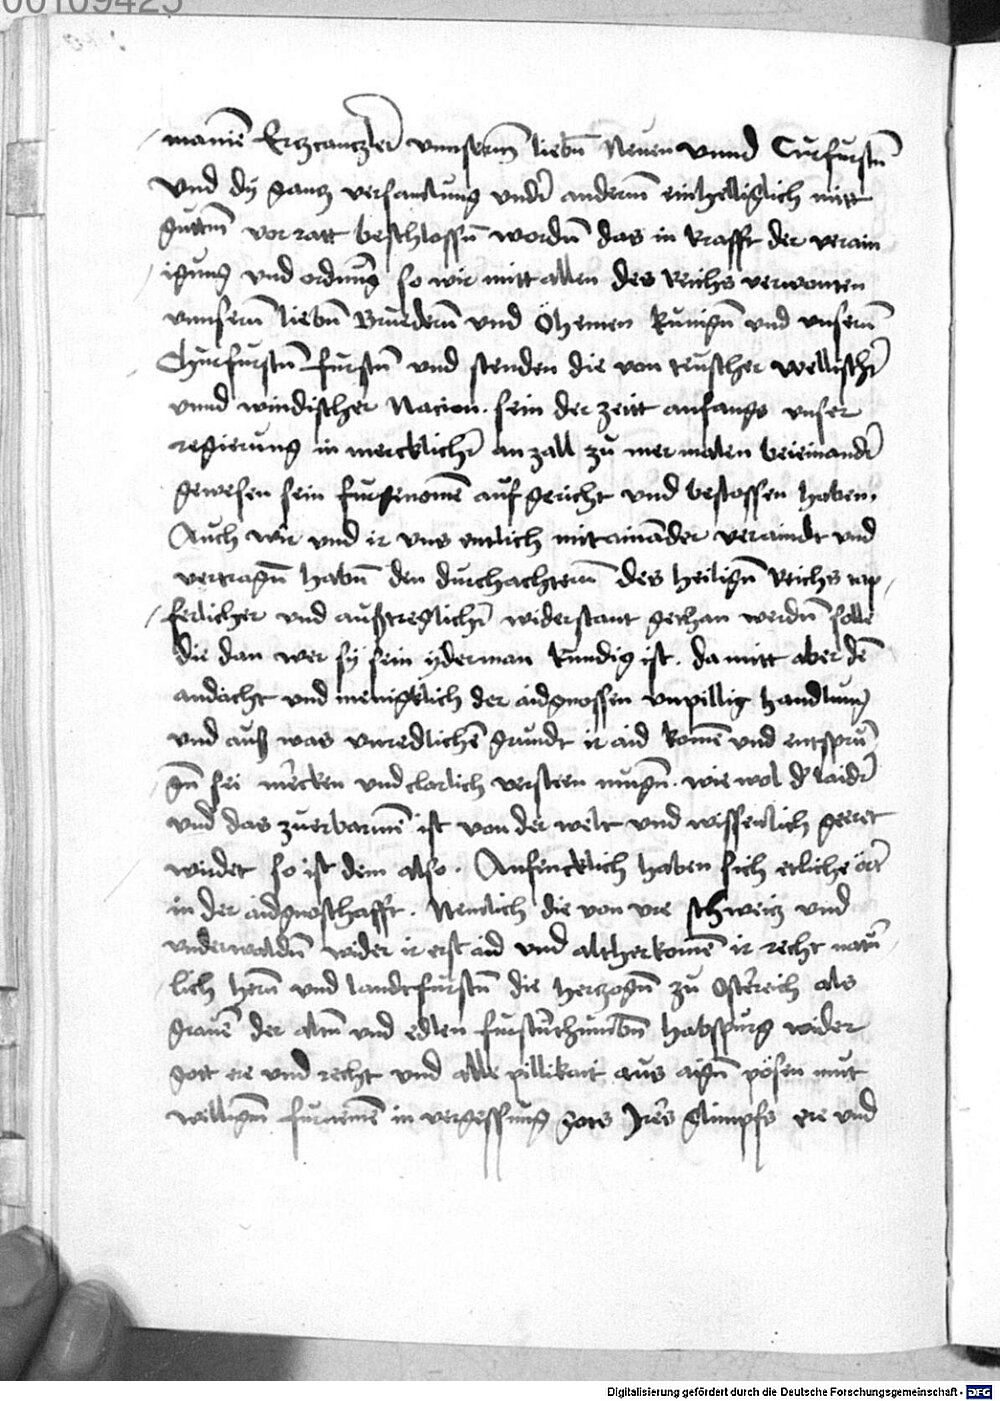 00109425
manie Ertzcanczler vnnserm liebn Neuen vnnd Curfurstn
vnd dy gantz versamlung vnder anderm einhelliglich mitt
guttm vor ratt beschlossn wordn das in krafft der verain
igung vnd ordnung so wir mitt allen des Reichs verwonten
vnnsern liebn Bruedern vnd Öhemen kunign vnd vnsern
Churfurstn furstn vnd stenden die von teutscher wellischr
vnnd windischer Nacion. sein der zeitt anfangs vnser
regierung in mercklichr an zall zu mermalen beieinandr
gewesen sein furgenomē auf gericht vnd beslossen haben.
Auch wir vnd ir vns entlich mitainander veraindt vnd
vertragn habn den durchachtern des heilign Reichs tap
ferlicher vnd außtreglichr widerstant gethan werdn solle
die dan wer sy sein yderman kundig ist. damitt aber dē
andacht vnd meniglich der aidgnossen vnpillig handlung
vnd auß was vnredlichē grundt ir aid komē vnd entsprū
gn sei mercken vnd clarlich versteen mugn. wie wol d' laidr
vnd das zuerbarmē ist von der welt vnd wissenlich geeret
wirdet so ist dem also. Anfincklich haben sich etliche ört
in der aidgnoschafft. Nemlich die von vre schweitz vnd
vnderwaldn wider ir erst aid vnd altherkomē ir recht natur
lich hern vnd landtfurstn die hertzogn zu Osterreich als
grauē der altn vnd edlen furstnthumbn habspurg wider
gott ere vnd recht vnd alle pillikait aus aign pösen mut
willign furnemē in vergessung gots Jrs glimpfs ere vnd
Digitalisierung gefördert durch die Deutsche Forschungsgemeinschaft - DFG